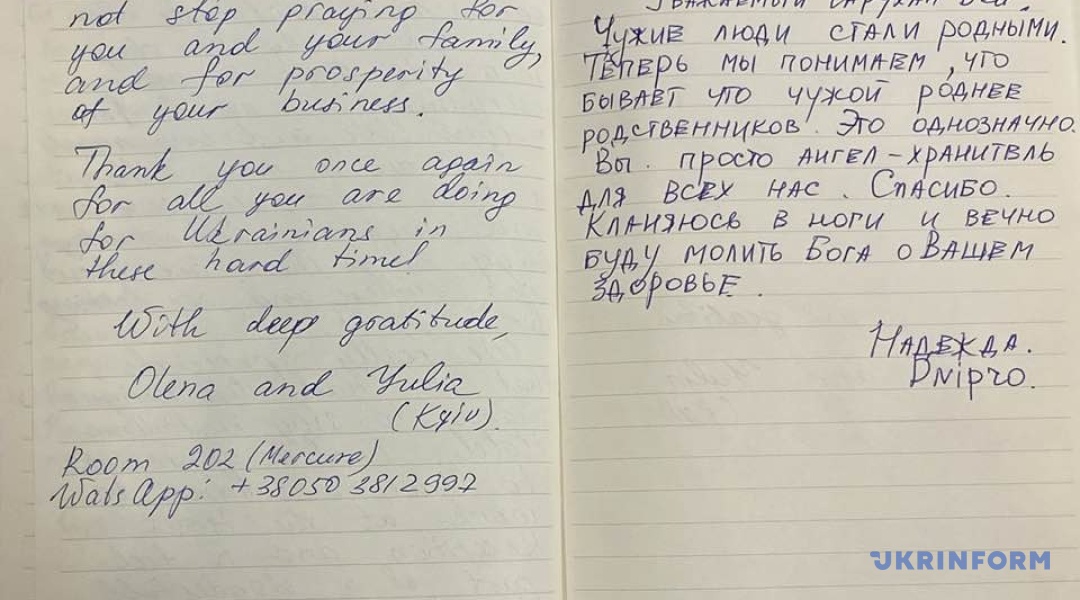 not stop praying for
you and your family,
and for prosperity
of your business.
Thank you once again
for all you are doing
for Ukrainians in
these hard time!
With deep gratitude,
Olena and Yulia
(Kyiv).
Room 202 (Mercure)
WatsApp: +38050 3812997
Уважаемый
Чужие люди стали родными.
Теперь мы понимаем, что
бывает что чужой роднее
родственников. Это однозначно.
Вы. просто ангел-хранитель
для всех нас. Спасибо.
Кланяюсь в ноги и вечно
буду молить Бога о Вашем
здоровье.
Надежда.
Dnipro.
UKRINFORM